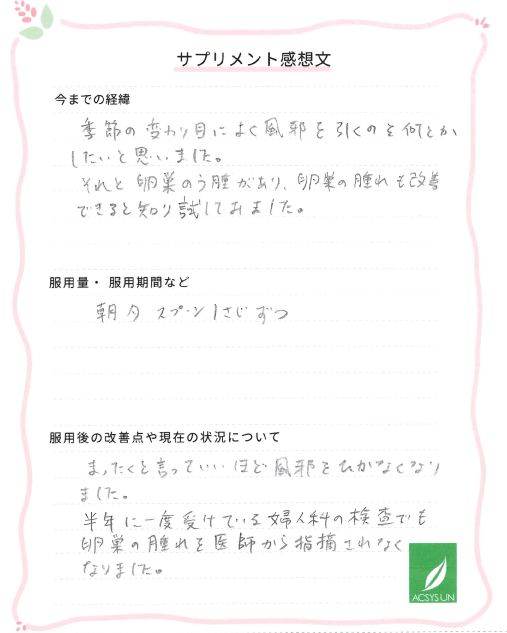 サプリメント感想文
今までの経緯
季節の変わり目によく風邪を引くのを何とか
したいと思いました。
それと卵巣のう腫があり、卵巣の腫れも改善
できると知り試してみました。
服用量・服用期間など
朝夕 スプーン1さじずつ
服用後の改善点や現在の状況について
まったくと言っていいほど風邪をひかなくなり
ました。
半年に一度受けている婦人科の検査でも
卵巣の腫れを医師から指摘されなく
なりました。
ACSYSUN